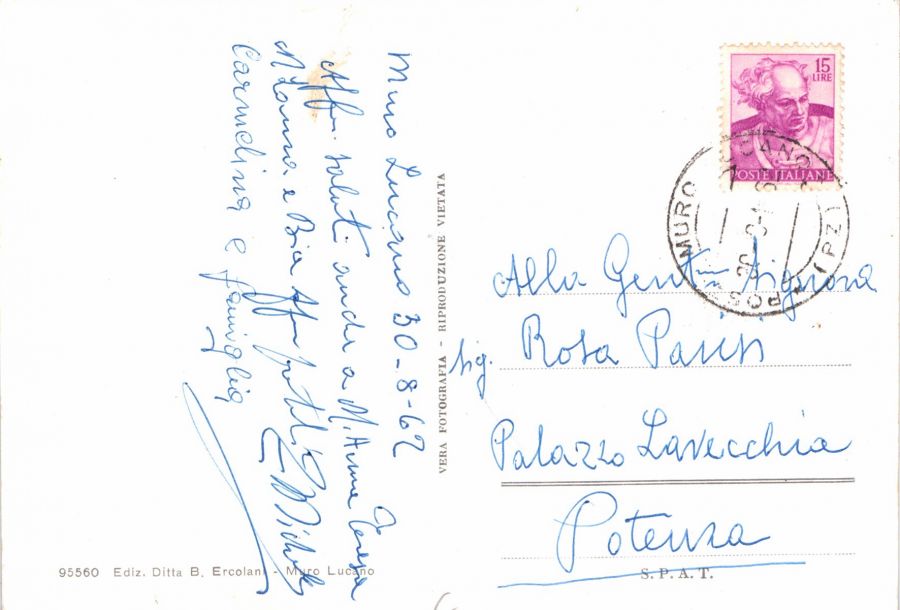 Muro Lucano 30-8-62
Aff. saluti anche a M. Anna Teresa
M. e Bia
Carmelina e famiglia
VERA FOTOGRAFIA - RIPRODUZIONE VIETATA
15
LIRE
POSTE ITALIANE
MURO LUCANO (PZ)
Alla Gent. Signora
sig. Rosa
Palazzo Lavecchia
Potenza
S.P.A.T.
95560 Ediz. Ditta B. Ercolani - Muro Lucano